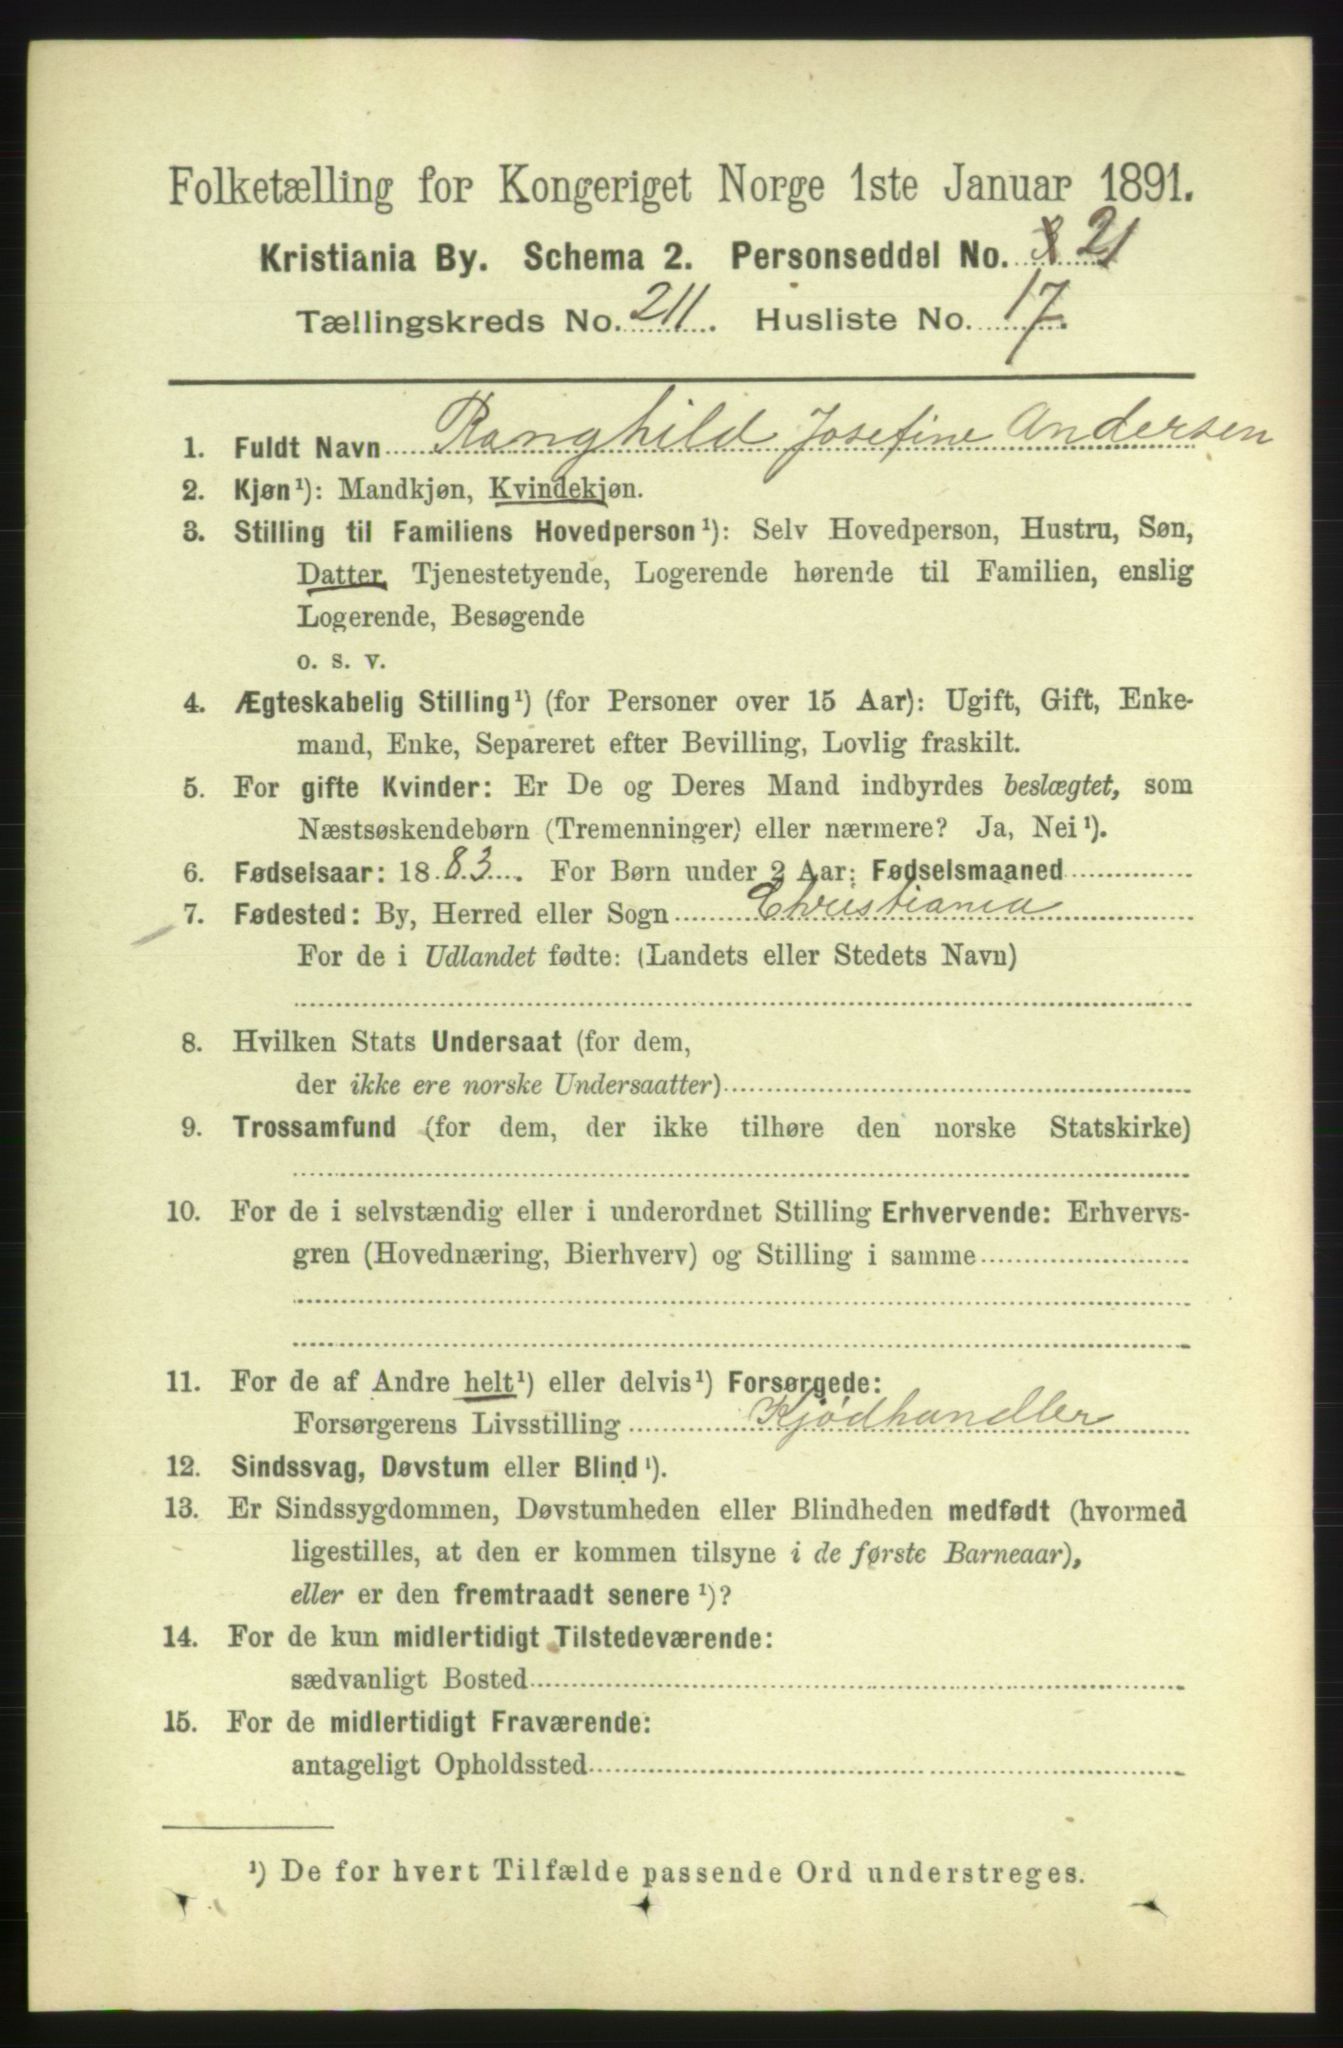 Folketælling for Kongeriget Norge 1ste Januar 1891.
Kristiania By. Schema 2. Personseddel No. 21
Tællingskreds No. 211. Husliste No. 17.
1. Fuldt Navn Ranghild Josefine Andersen
2. Kjøn¹): Mandkjøn, Kvindekjøn.
3. Stilling til Familiens Hovedperson¹): Selv Hovedperson, Hustru, Søn,
Datter, Tjenestetyende, Logerende hørende til Familien, enslig
Logerende, Besøgende
o. s. v.
4. Ægteskabelig Stilling¹) (for Personer over 15 Aar): Ugift, Gift, Enke-
mand, Enke, Separeret efter Bevilling, Lovlig fraskilt.
5. For gifte Kvinder: Er De og Deres Mand indbyrdes beslægtet, som
Næstsøskendebørn (Tremenninger) eller nærmere? Ja, Nei¹).
6. Fødselsaar: 1883. For Børn under 2 Aar: Fødselsmaaned
7. Fødested: By, Herred eller Sogn Christiania
For de i Udlandet fødte: (Landets eller Stedets Navn)
8. Hvilken Stats Undersaat (for dem,
der ikke ere norske Undersaatter)
9. Trossamfund (for dem, der ikke tilhøre den norske Statskirke)
10. For de i selvstændig eller i underordnet Stilling Erhvervende: Erhvervs-
gren (Hovednæring, Bierhverv) og Stilling i samme
11. For de af Andre helt¹) eller delvis¹) Forsørgede:
Forsørgerens Livsstilling Kjødhandler
12. Sindssvag, Døvstum eller Blind¹).
13. Er Sindssygdommen, Døvstumheden eller Blindheden medfødt (hvormed
ligestilles, at den er kommen tilsyne i de første Barneaar),
eller er den fremtraadt senere¹)?
14. For de kun midlertidigt Tilstedeværende:
sædvanligt Bosted
15. For de midlertidigt Fraværende:
antageligt Opholdssted
¹) De for hvert Tilfælde passende Ord understreges.